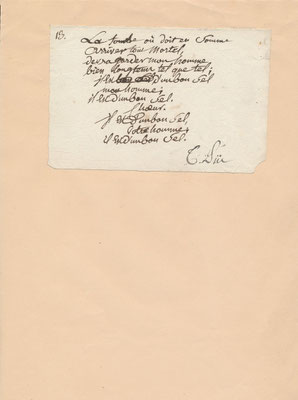 15.
La tombe où doit en Somme
arriver tout Mortel,
devra garder mon homme
bien longtems tel que tel.
il est D'un bon Sel
mon homme;
il est D'un bon Sel.
Chœur.
il est D'un bon Sel,
votre homme;
il est D'un bon Sel.